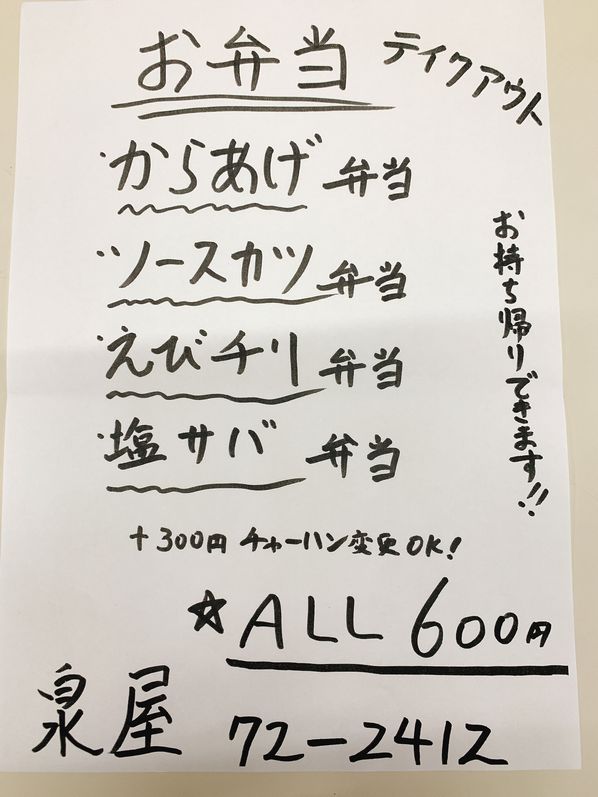 お弁当
テイクアウト
・からあげ弁当
・ソースカツ弁当
・えびチリ弁当
・塩サバ弁当
お持ち帰りできます!!
+300円 チャーハン変更OK!
☆ALL 600円
泉屋 72-2412